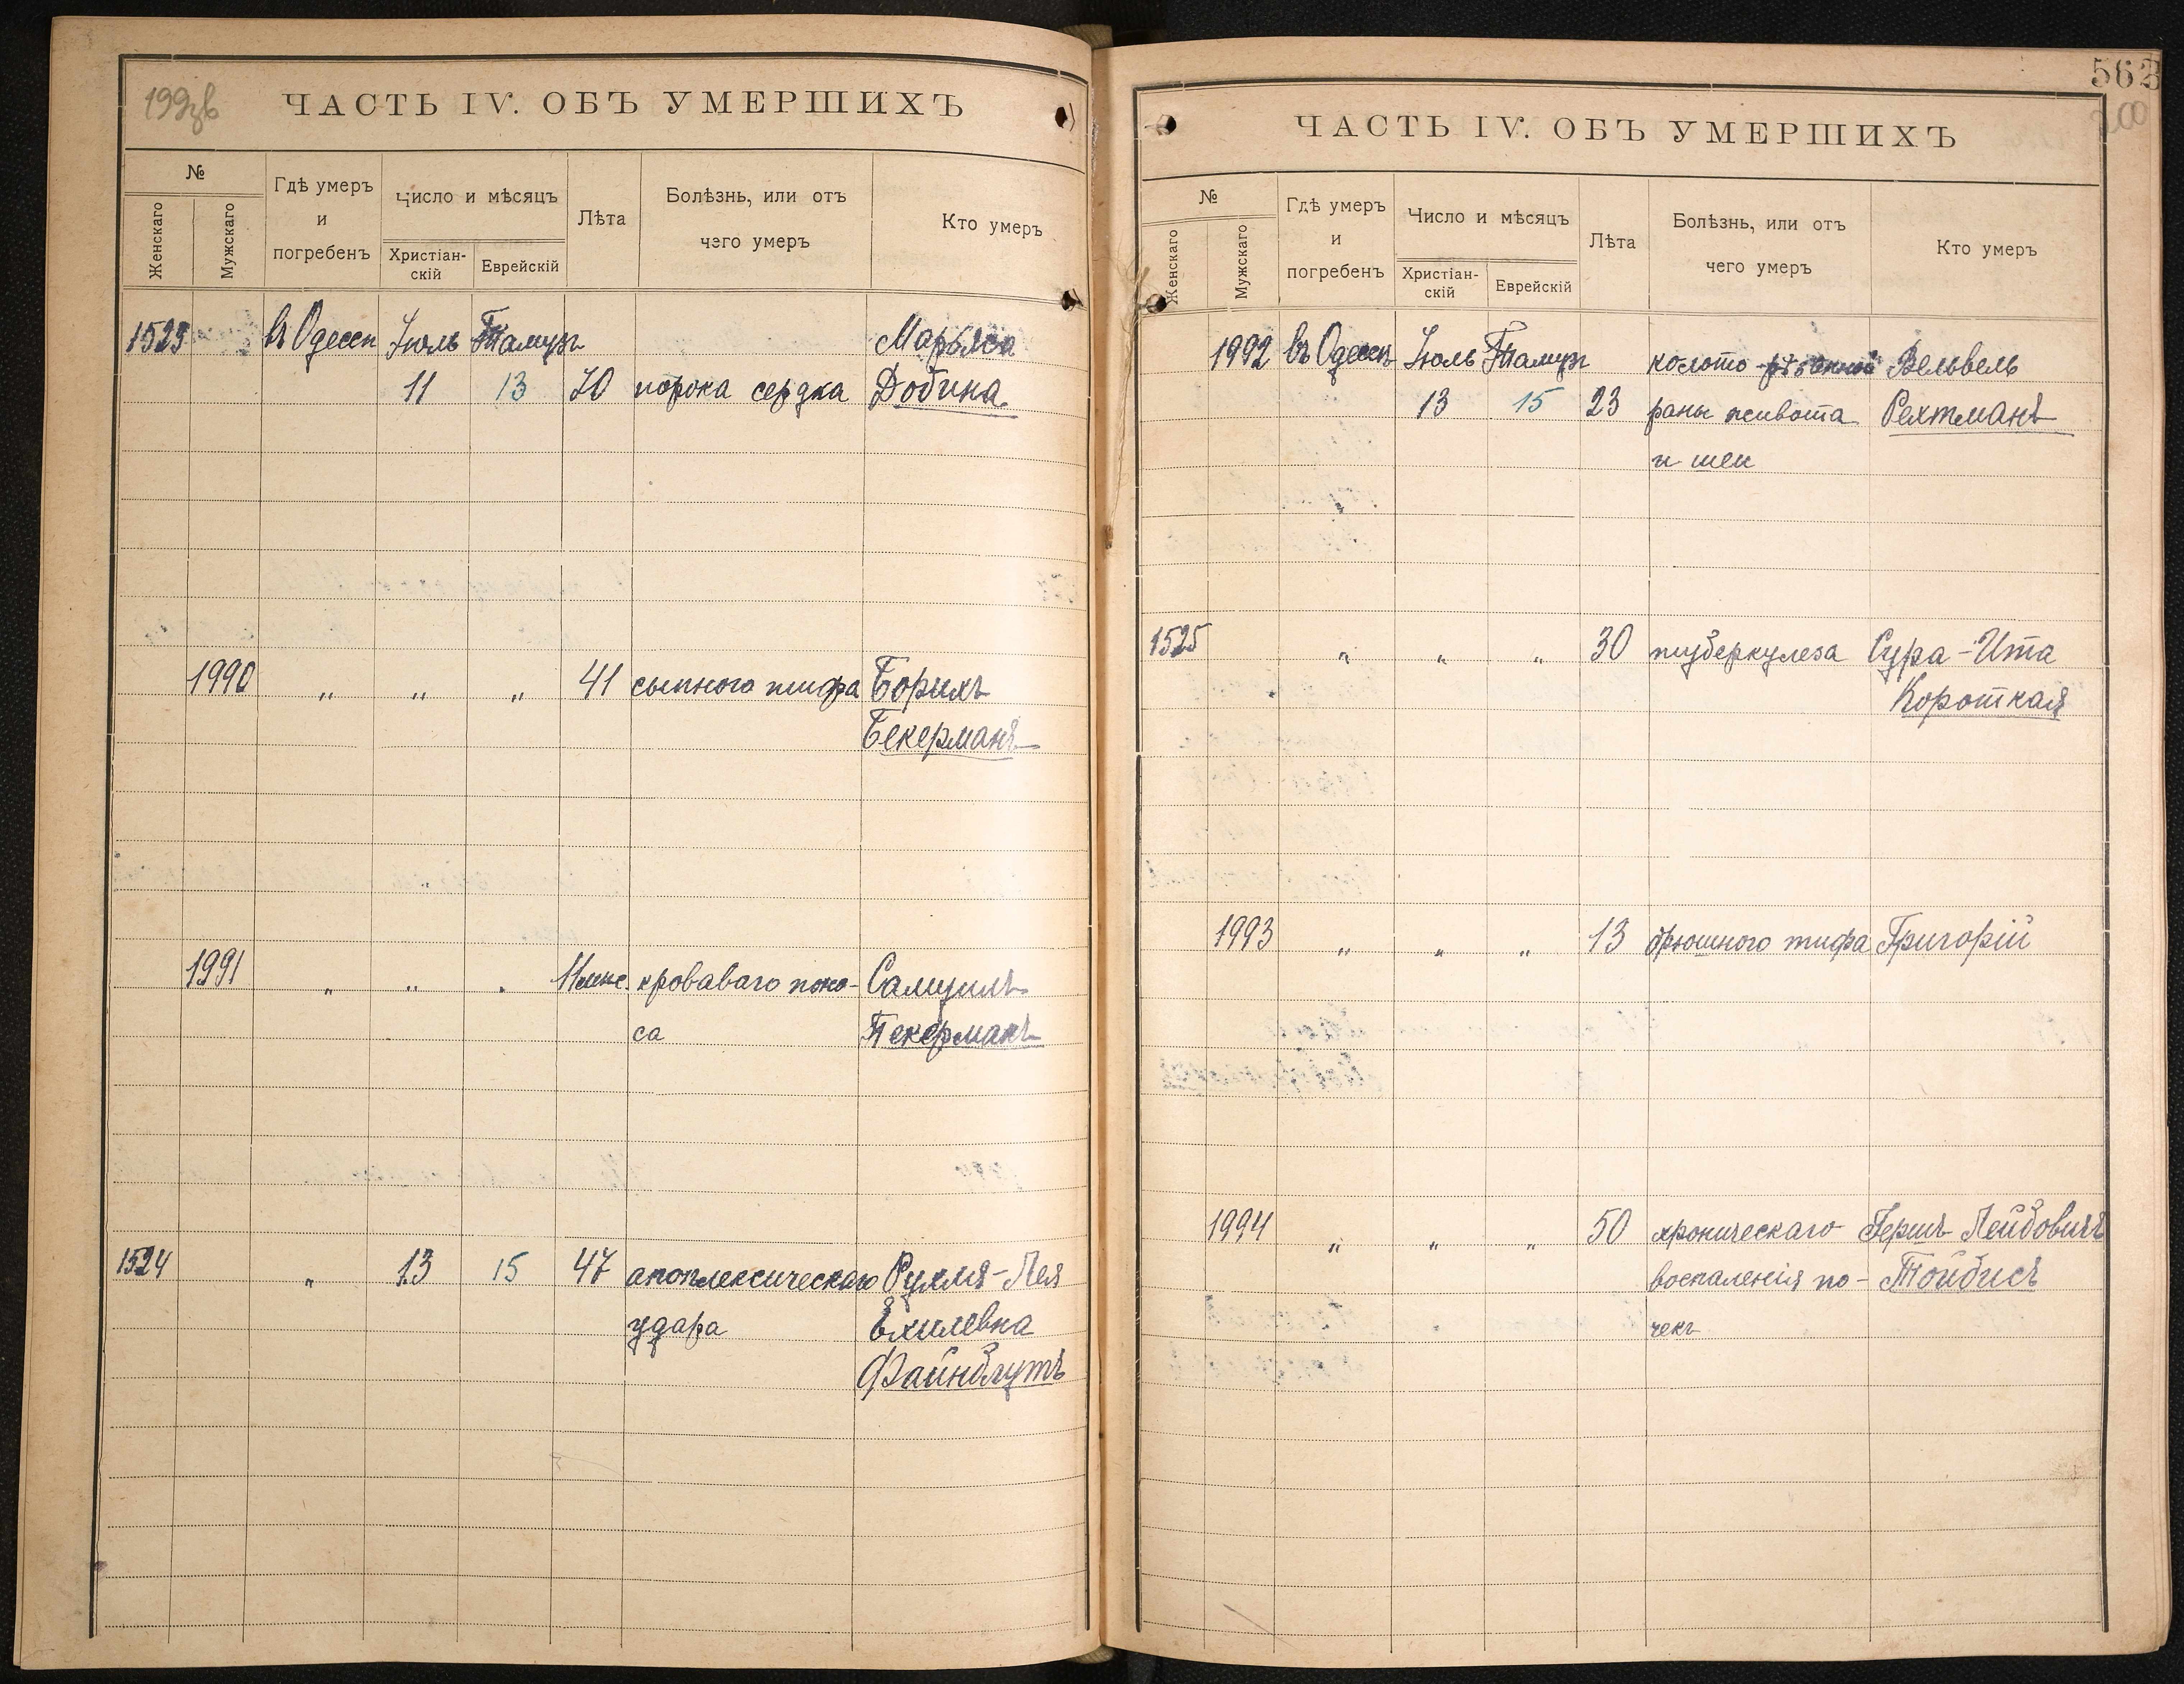 199об
ЧАСТЬ IV. ОБЪ УМЕРШИХЪ
№
Женскаго
Мужскаго
Гдѣ умеръ
и
погребенъ
Число и мѣсяцъ
Христіан-
скій
Еврейскій
Лѣта
Болѣзнь, или отъ
чего умеръ
Кто умеръ
1523 въ Одессѣ Іюль Тамузъ Марьяса
11 13 70 порока сердка Добина
1990 „ „ „ 41 сыпного тифа Борихъ
Бекерманъ
1991 „ „ „ 11 мѣс. кроваваго поно- Самуилъ
са Пекерманъ
1524 „ 13 15 47 апоплексическаго Рухля-Лея
удара Ехилевна
Файнблутъ
562
200
ЧАСТЬ IV. ОБЪ УМЕРШИХЪ
№
Женскаго
Мужскаго
Гдѣ умеръ
и
погребенъ
Число и мѣсяцъ
Христіан-
скій
Еврейскій
Лѣта
Болѣзнь, или отъ
чего умеръ
Кто умеръ
1992 въ Одессѣ Іюль Тамузъ колото-рѣзанной Вельвель
13 15 23 раны живота Рехтманъ
и шеи
1525 „ „ „ 30 туберкулеза Сура-Ита
Короткая
1993 „ „ „ 13 брюшного тифа Григорій
1994 „ „ „ 50 хроническаго Гершъ Лейбовичъ
воспаленія по- Тойбисъ
чекъ